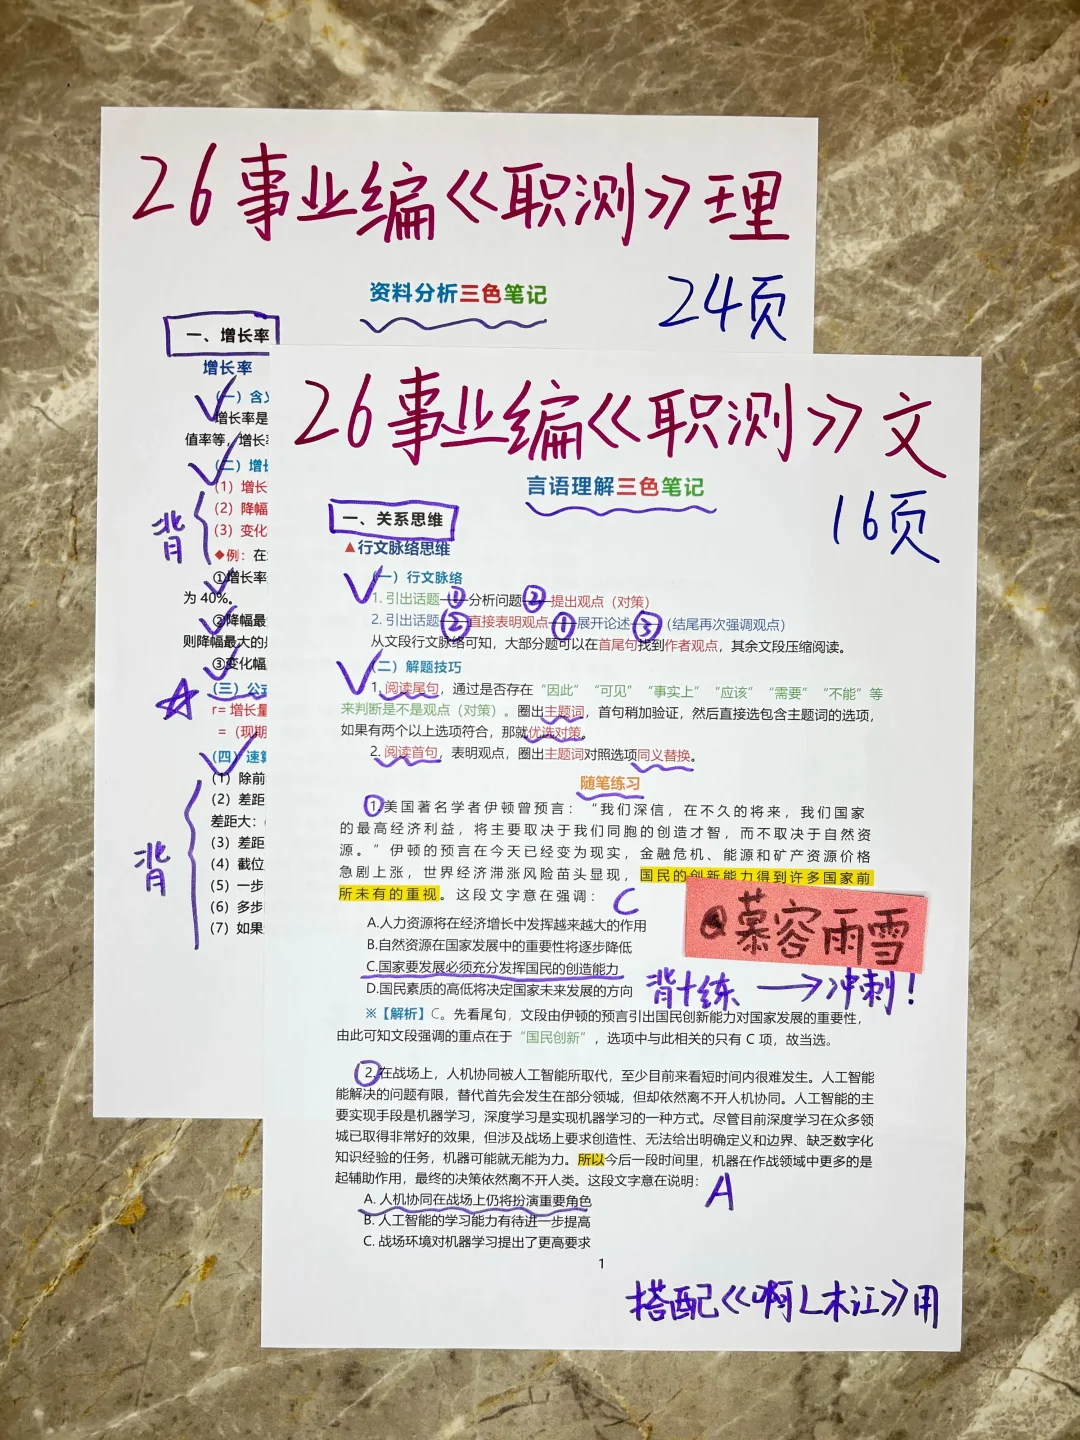 26事业编《职测》理
24页
资料分析三色笔记
一、增长率
增长率
(一)含
增长率是
值率等,增长
(二)增长
(1)增长
(2)降幅
(3)变化
背
◆例:在
①增长率
为 40%。
②降幅最
则降幅最大的
③变化幅
(三)公式
r=增长量
=(现期
(四)速算
(1)除前
(2)差距
差距大:
(3)差距
(4)截位
(5)一步
(6)多步
(7)如果
背
26事业编《职测》文
16页
言语理解三色笔记
一、关系思维
▲行文脉络思维
(一)行文脉络
1. 引出话题——①分析问题②——提出观点(对策)
2. 引出话题②——直接表明观点——①展开论述——③(结尾再次强调观点)
从文段行文脉络可知,大部分题可以在首尾句找到作者观点,其余文段压缩阅读。
(二)解题技巧
1. 阅读尾句,通过是否存在“因此”“可见”“事实上”“应该”“需要”“不能”等
来判断是不是观点(对策)。圈出主题词,首句稍加验证,然后直接选包含主题词的选项,
如果有两个以上选项符合,那就优选对策。
2. 阅读首句,表明观点,圈出主题词对照选项同义替换。
随笔练习
1.美国著名学者伊顿曾预言:“我们深信,在不久的将来,我们国家
的最高经济利益,将主要取决于我们同胞的创造才智,而不取决于自然资
源。”伊顿的预言在今天已经变为现实,金融危机、能源和矿产资源价格
急剧上涨,世界经济滞涨风险苗头显现,国民的创新能力得到许多国家前
所未有的重视。这段文字意在强调: C
A.人力资源将在经济增长中发挥越来越大的作用
B.自然资源在国家发展中的重要性将逐步降低
C.国家要发展必须充分发挥国民的创造能力
D.国民素质的高低将决定国家未来发展的方向
@慕容雨雪
背+练→冲刺!
※【解析】C。先看尾句,文段由伊顿的预言引出国民创新能力对国家发展的重要性,
由此可知文段强调的重点在于“国民创新”,选项中与此相关的只有 C 项,故当选。
2.在战场上,人机协同被人工智能所取代,至少目前来看短时间内很难发生。人工智能
能解决的问题有限,替代首先会发生在部分领域,但却依然离不开人机协同。人工智能的主
要实现手段是机器学习,深度学习是实现机器学习的一种方式。尽管目前深度学习在众多领
域已取得非常好的效果,但涉及战场上要求创造性、无法给出明确定义和边界、缺乏数字化
知识经验的任务,机器可能就无能为力。所以今后一段时间里,机器在作战领域中更多的是
起辅助作用,最终的决策依然离不开人类。这段文字意在说明: A
A. 人机协同在战场上仍将扮演重要角色
B. 人工智能的学习能力有待进一步提高
C. 战场环境对机器学习提出了更高要求
1
搭配《啊L木江》用